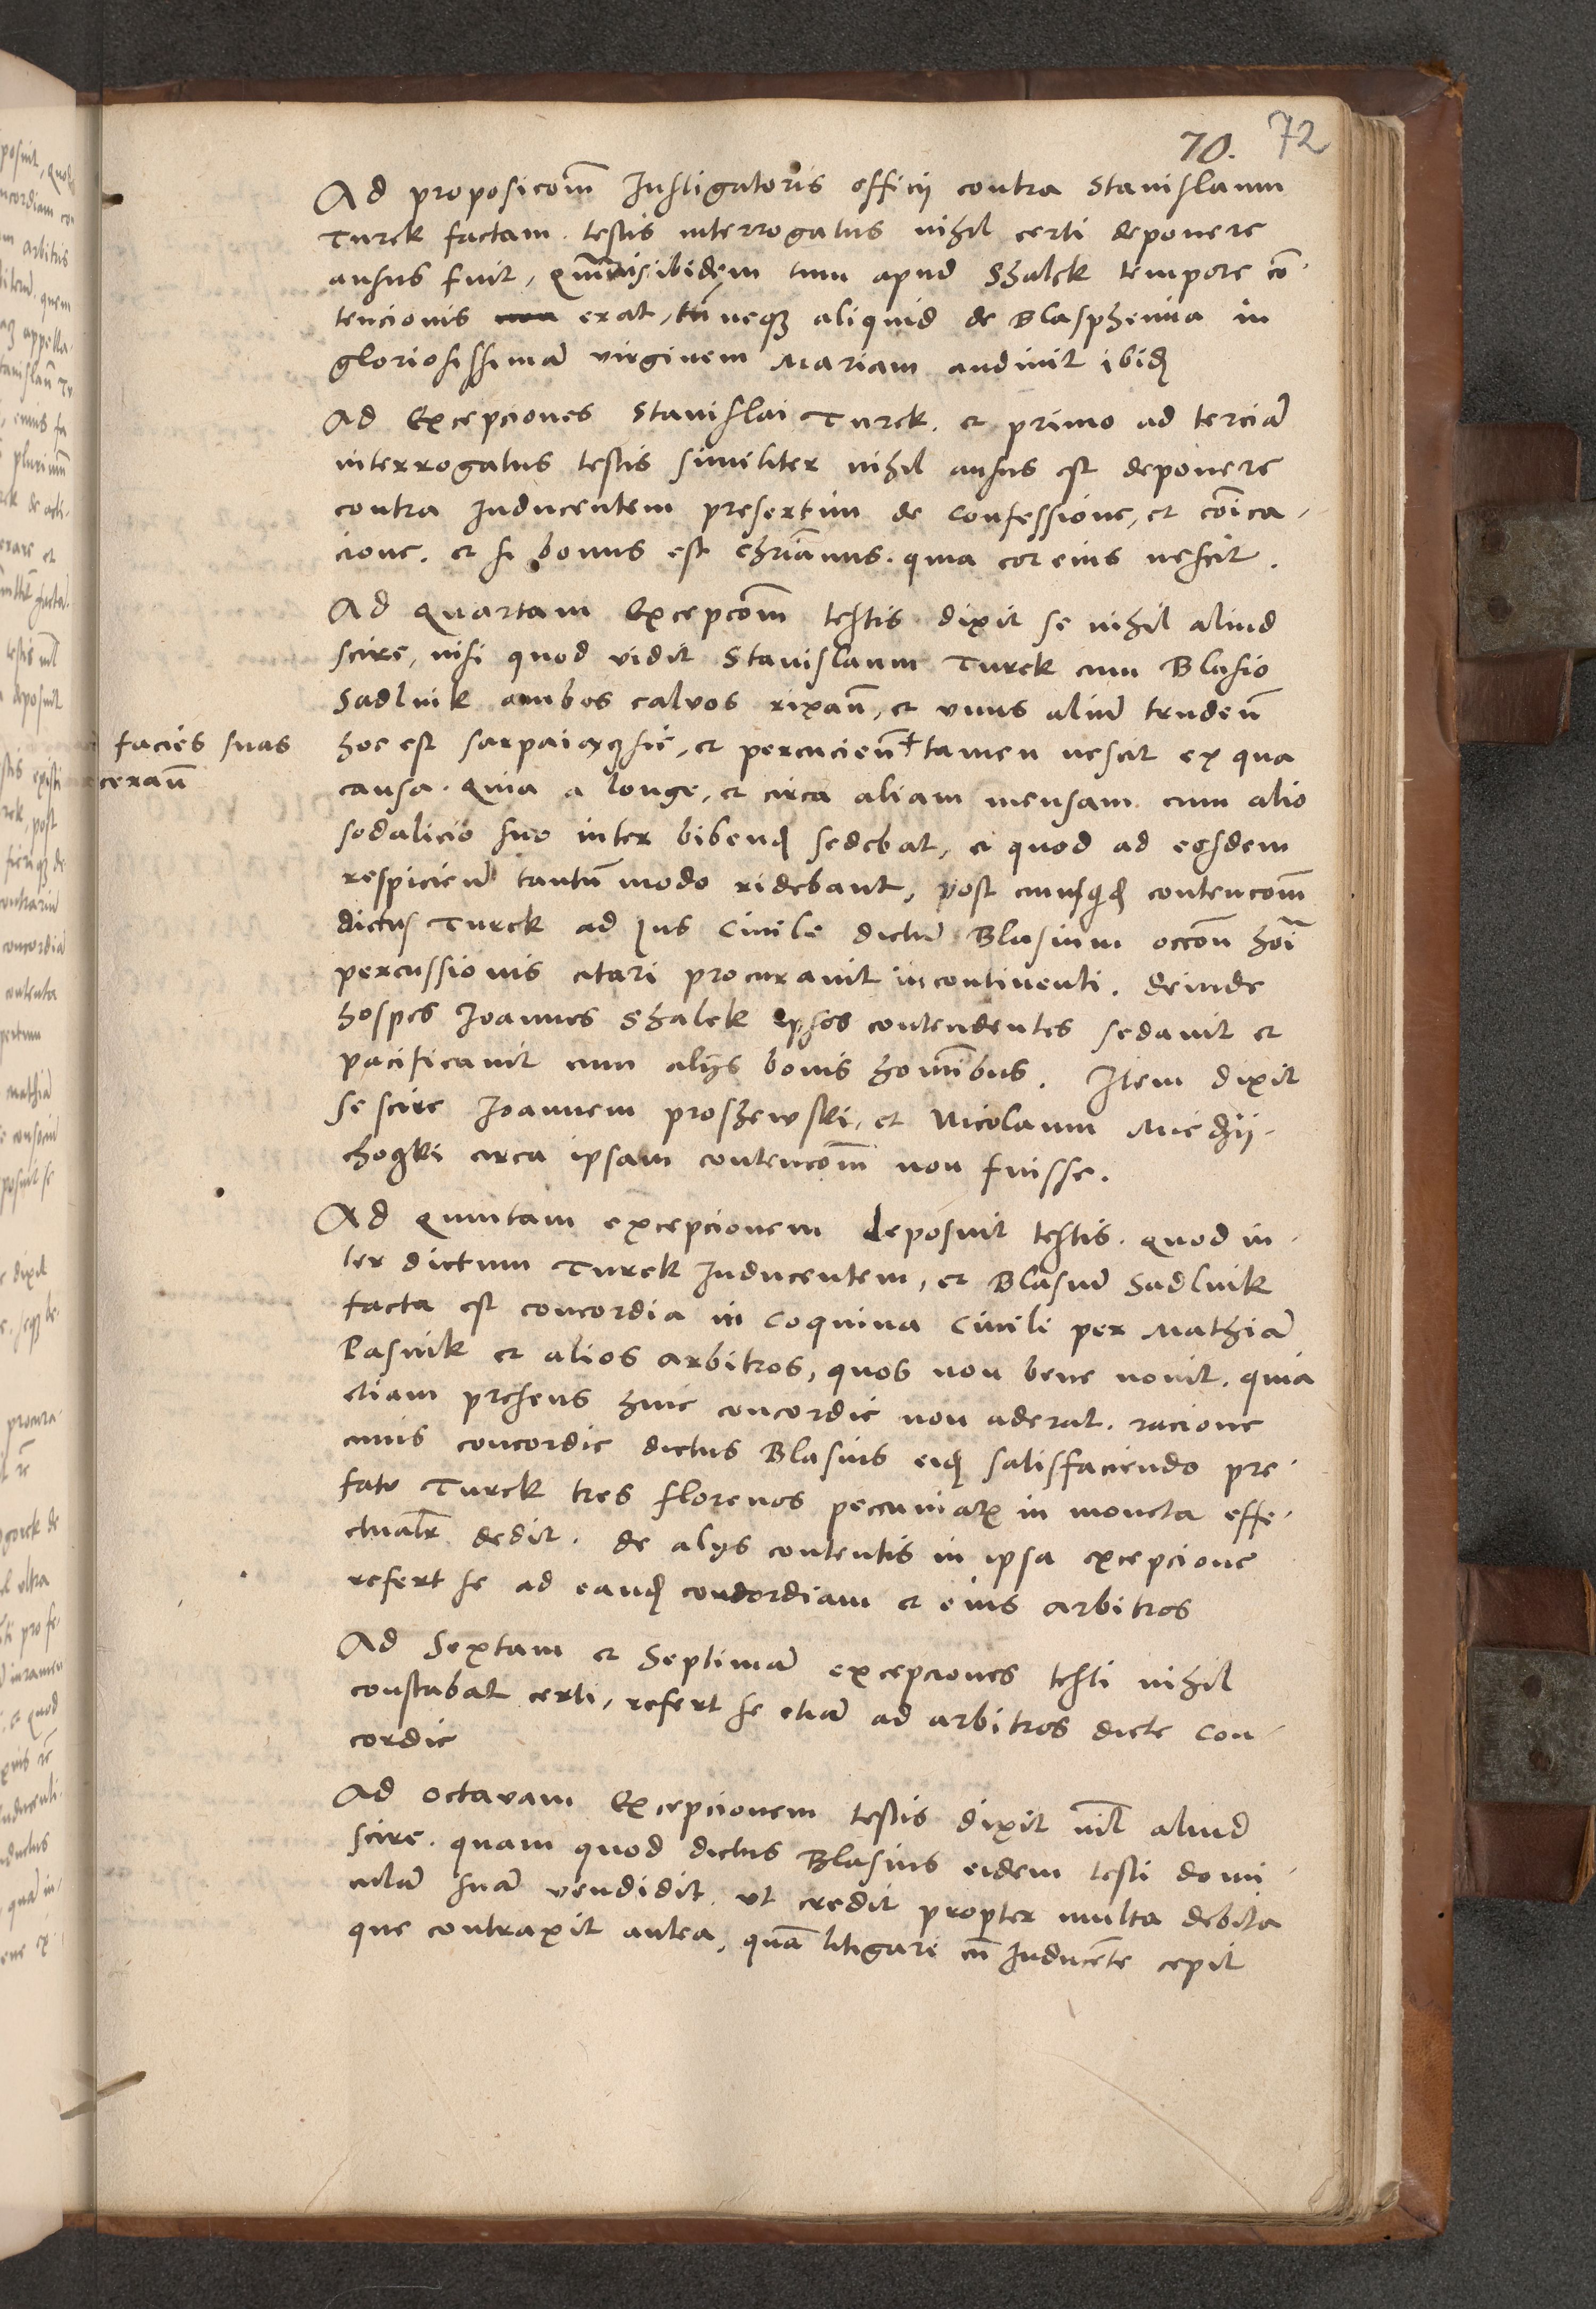 70. 72
Ad proposicōm Instigatoris officii contra Stanislaum
Turek factam. testis interrogatus nihil certi deponere
ausus fuit, Qm̄vis ibidem tum apud Shalek tempore cō
tencionis erat, tn̄ neqz aliquid de Blasphemia in
gloriosissimā virginem Mariam audivit ibid
Ad Excepciones Stanislai Turek. et primo ad terciā
interrogatus testis similiter nihil ausus est deponere
contra Inducentem presertim de confessione, et cōica-
cione. et si bonus est chrīanus. quia cor eius nescit.
Ad Quartam Excepcōm testis dixit se nihil aliud
scire, nisi quod vidit Stanislaum Turek cum Blasio
Sadlnik ambos calvos rixan̄, et unus aliū truden̄
hoc est sarpaiącz sie, et percucien̄ + tamen nescit ex qua
facies suas
ceran̄
causa. Quia a longe, et circa aliam mensam cum alio
sodalicio suo inter bibend sedebat, et quod ad eosdem
respicien̄ tantū modo ridebant, post cuiusqd contencōm
dictus Turek ad Ius Civile dictū Blasium occōn hōi
percussionis citari procuravit incontinenti. deinde
hospes Joannes Shalek ipsos contendentes sedavit et
pacificavit cum alijs bonis hominibus. Item dixit
se scire Joannem proshewski, et Nicolaum Miechij-
chogski circa ipsam contencōm non fuisse.
Ad Quintam excepcionem deposuit testis. quod in-
ter dictum Turek Inducentem, et Blasiū Sadlnik
facta est concordia in coquina Civili per Mathiā
Pasnik et alios arbitros, quos non bene novit. quia
etiam presens huic concordie non aderat. racione
cuius concordie dictus Blasius eid satisfaciendo pre-
fato Turek tres florenos peccuniarx in moneta effe-
ctualr̄ dedit. de alijs contentis in ipsa excepcione
refert se ad eand concordiam et eius arbitros
Ad Sextam et Septimā excepciones testi nihil
constabat certi, refert se etiā ad arbitros dicte con-
cordie
Ad octavam Excepcionem testis dixit nil̄ aliud
scire. quam quod dictus Blasius eidem testi domi-
culā suā vendidit, ut credit propter multa debita
que contraxit antea, quā litigare cū Inducēte cepit